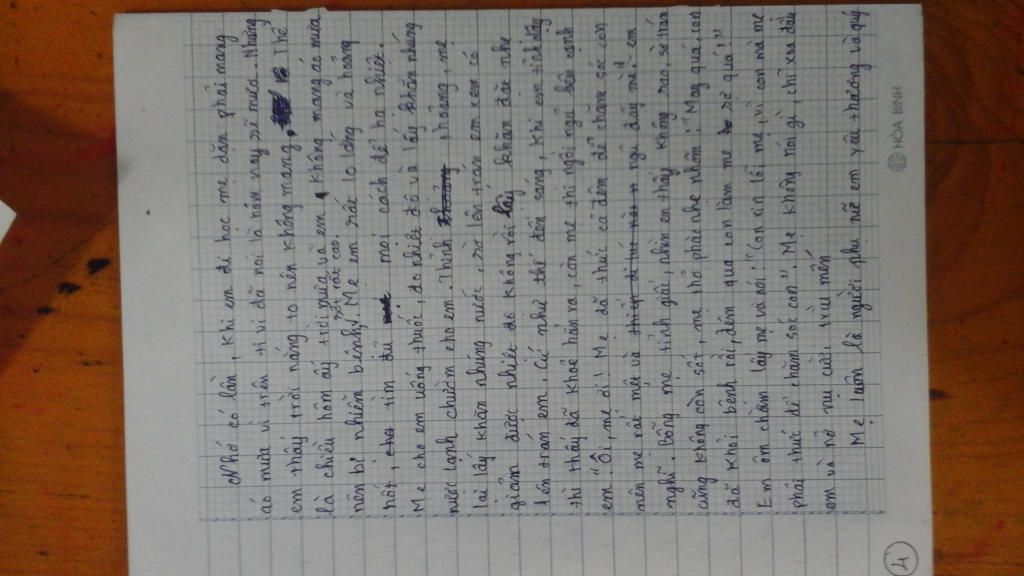 Nhớ có lần, khi em đi học mẹ dặn phải mang
áo mưa vì trên ti vi đã nói là hôm nay sẽ mưa. Nhưng
em thấy trời nắng to nên không mang. Thế
là chiều hôm ấy trời mưa và em không mang áo mưa
sốt rất cao.
nên bị nhiễm bệnh. Mẹ em rất lo lắng và hoảng
hốt, tìm đủ mọi cách để hạ nhiệt.
Mẹ cho em uống thuốc, đo nhiệt độ và lấy khăn nhúng
nước lạnh chườm cho em. Thỉnh thoảng, mẹ
lại lấy khăn nhúng nước, sờ lên trán em xem có
giảm được nhiệt độ không rồi lấy khăn đắp nhẹ
lên trán em. Cứ như thế đến sáng, khi em tỉnh dậy
thì thấy đã khoẻ hẳn ra, còn mẹ thì ngồi ngủ bên cạnh
em "Ôi, mẹ ơi! Mẹ đã thức cả đêm để chăm sóc con
nên mẹ rất mệt và ngủ đấy mà!" em
nghĩ. Bỗng mẹ tỉnh giấc, nhìn em thấy không sao, sờ trán
cũng không còn sốt, mẹ thở phào nhẹ nhõm: "May quá, con
đã khỏi bệnh rồi, đêm qua con làm mẹ sợ quá!"
Em ôm chầm lấy mẹ và nói: "Con xin lỗi mẹ, vì con mà mẹ
phải thức để chăm sóc con". Mẹ không nói gì, chỉ xoa đầu
em và nở nụ cười trìu mến
Mẹ luôn là người phụ nữ em yêu thương và quý
4
HÒA BÌNH